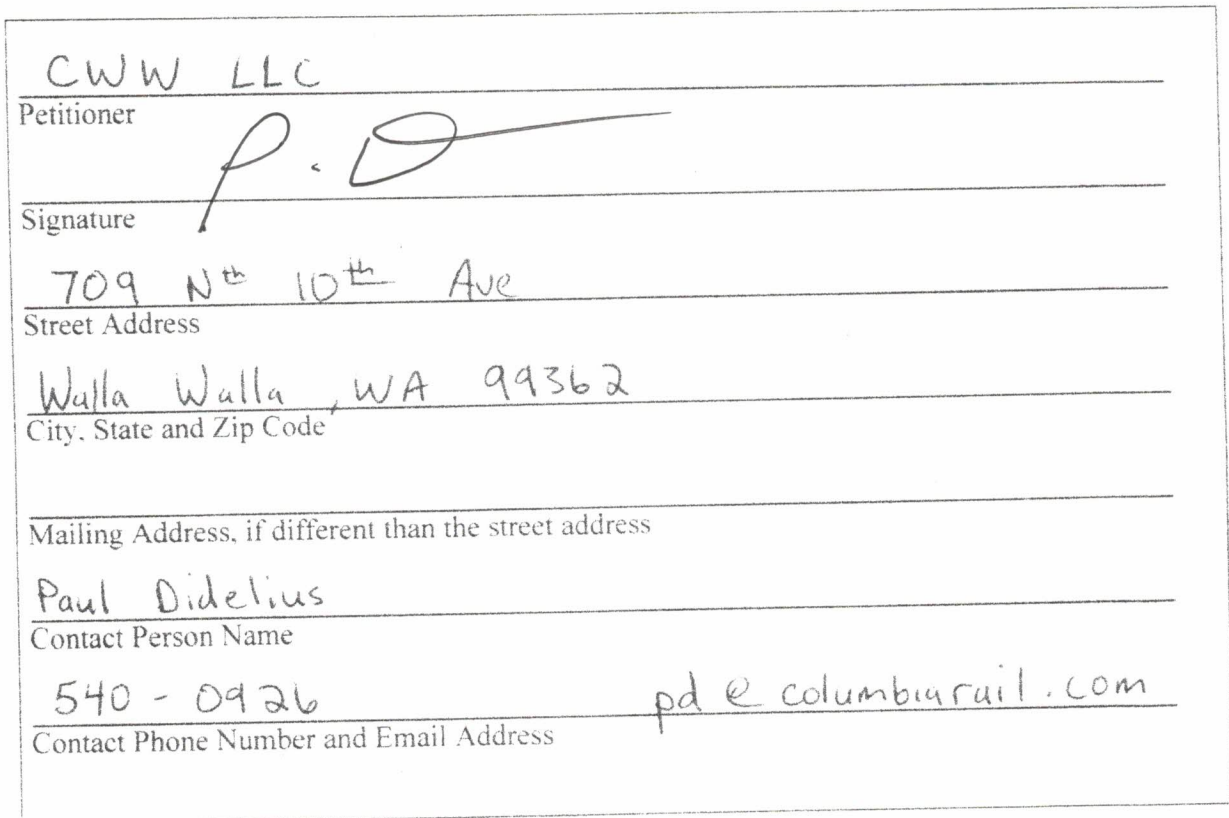 CWW LLC
Petitioner
P. D
Signature
709 Nth 10th Ave
Street Address
Walla Walla, WA 99362
City, State and Zip Code
Mailing Address, if different than the street address
Paul Didelius
Contact Person Name
540 - 0926 pd @ columbiarail.com
Contact Phone Number and Email Address